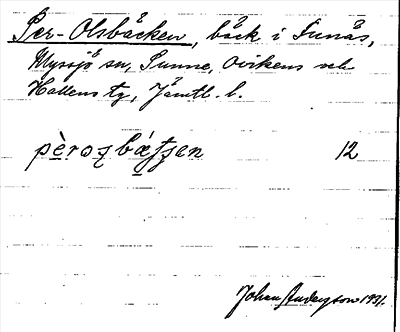 Per-Olsbäcken, bäck i Funäs,
Myssjö sn, Sunne, Ovikens och
Hallens tg, Jämtl. l.
pèroʂbæ̀ʃʃen 12
Johan Anderson 1931.